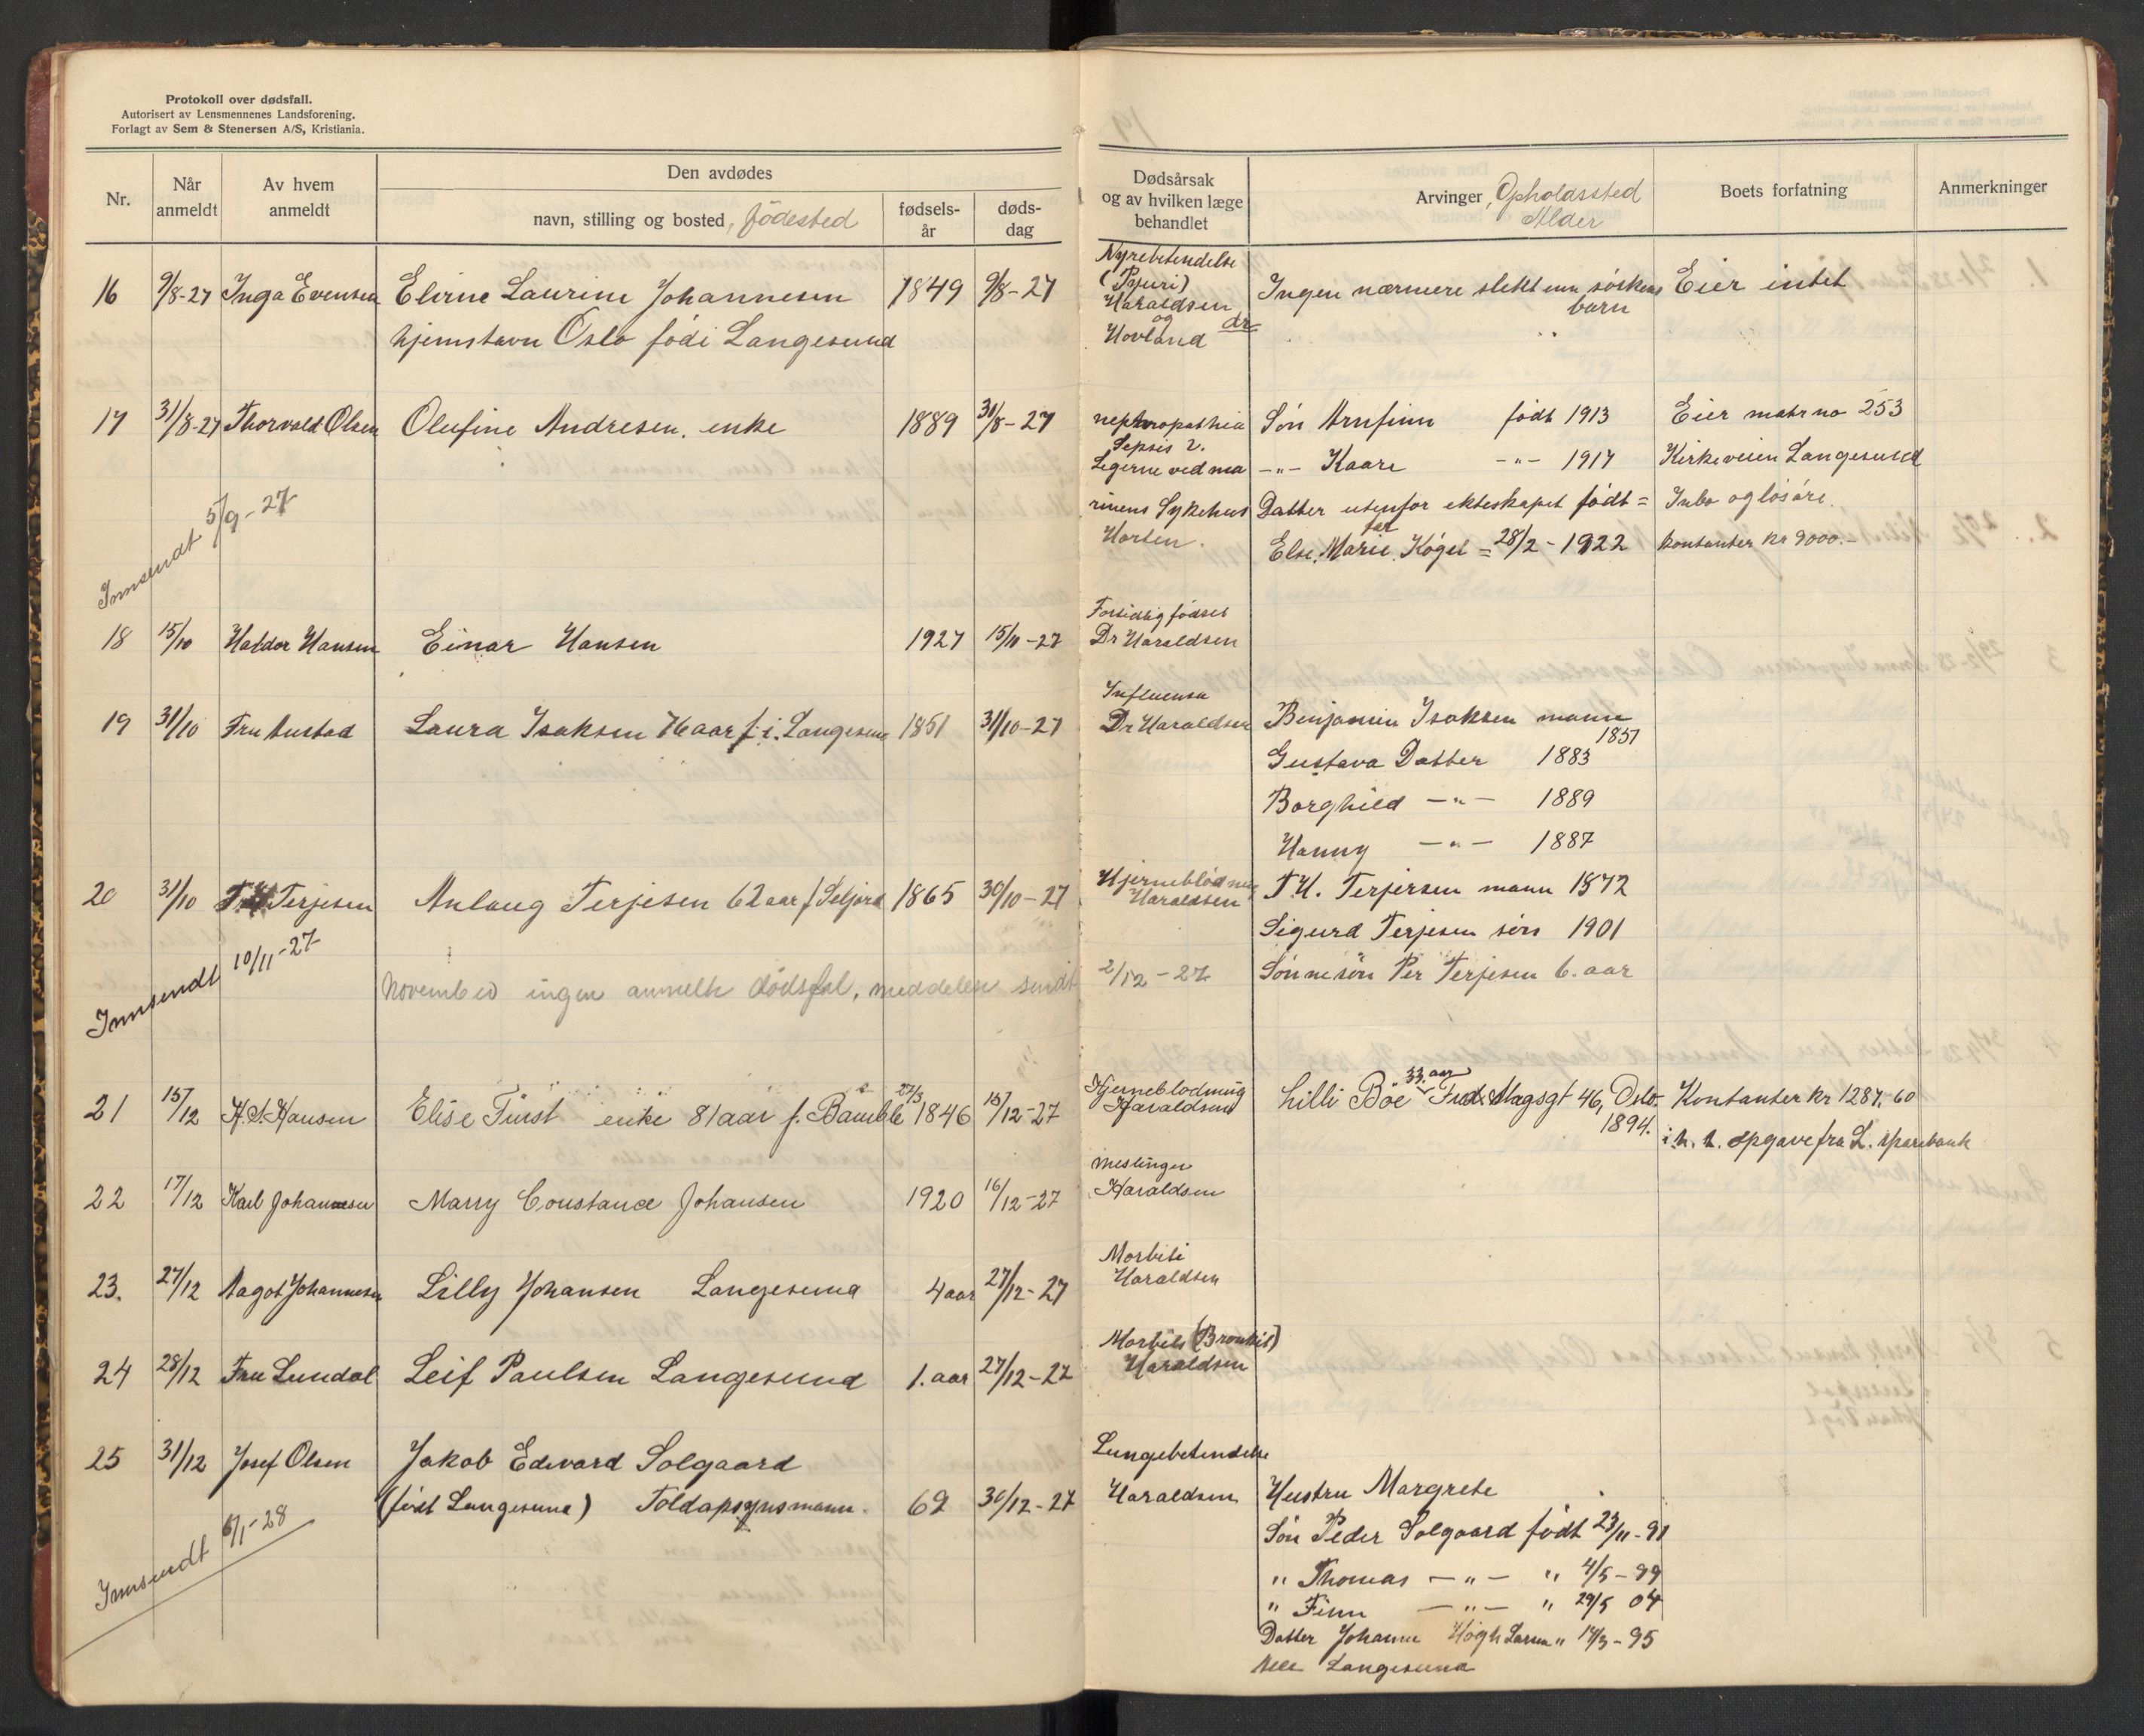 Protokoll over dødsfall.
Autorisert av Lensmennenes Landsforening.
Forlagt av Sem & Stenersen A/S, Kristiania.
Nr.
Når anmeldt
Av hvem anmeldt
Den avdødes
navn, stilling og bosted, födested
fødsels-år
døds-dag
Dødsårsak og av hvilken læge behandlet
Arvinger, Opholdssted Alder
Boets forfatning
Anmerkninger
16 9/8-27 Inga Evensen Elirne Laurine Johannesen 1849 9/8-27
hjemstavn Oslo född i Langesund
Nyrebetendelse
(Pyuri)
Haraldsen
og
Hovland dr
Ingen nærmere slekt enn söskens
barn
Eier intet
17 31/8-27 Thorvald Olsen Olufine Andresen. enke 1889 31/8-27
nephropathia
Sepsis
Legerne ved ma
rinens Sykehus
Horten.
Sön Arnfinn födt 1913
-"- Kaare -"- 1917
Datter utenfor ekteskapet födt =
Else Marie Kögel = 28/2-1922
Eier matr no 253
Kirkeveien Langesund
Inbo og lösöre.
kontanter kr 9000.-
Innsendt 5/9-27
18 15/10 Haldor Hansen Einar Hansen 1927 15/10-27
Fortidlig födsel
Dr Haraldsen
19 31/10 Fru Austad Laura Isaksen 76 aar f. i. Langesund 1851 31/10-27
Influensa
Dr Haraldsen
Benjamin Isaksen mann
1851
Gustava Datter 1883
Borghild -"- 1889
Hanny -"- 1887
20 31/10 T.H. Terjesen Anlaug Terjesen 62 aar f Seljord 1865 30/10-27
Hjerneblödning
Haraldsen
T.H. Terjersen mann 1872
Sigurd Terjesen sön 1901
Sönnesön Per Terjesen 6. aar
Innsendt 10/11-27
November ingen anmelte dödsfal, meddelese sendt 2/12-27
21 15/12 H. S. Hansen Elise Fürst enke 81 aar f. Bamble 27/3 1846 15/12-27
Hjerneblödning
Haraldsen
Lilli Böe 33 aar Fred. Slagsgt 46, Oslo
1894.
Kontanter kr 1287,60
i h. t. opgave fra L. sparebank
22 17/12 Karl Johannesen Marry Constance Johansen 1920 16/12-27
Meslinger
Haraldsen
23. 27/12 Aagot Johannesen Lilly Johansen Langesund 4 aar 27/12-27
Morbili
Haraldsen
24 28/12 Fru Lundal Leif Paulsen Langesund 1. aar 27/12-27
Morbili (Bronkit)
Haraldsen
25 31/12 Josef Olsen Jakob Edvard Solgaard
(födt Langesund) Toldopsynsmann. 69 30/12-27
Lungebetendelse
Haraldsen
Hustru Margrete
Sön Peder Solgaard födt 23/11-91
" Thomas -"- " 4/5-99
" Finn -"- " 29/5 04
Datter Johanne Högh Larsen " 14/3-95
Alle Langesund
Innsendt 6/1-28